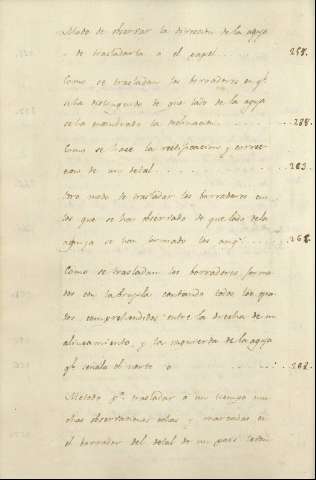 Modo de observar la direccion de la aguja
de trasladarla a el papel . . . . . 258.
Como se trasladan los borradores en qe.
se ha distinguido de que lado de la aguja
se ha encontrado la declinacn. . . . . 288.
Como se hace la rectificacion y correc-
cion de un detal . . . . . 283.
Otro modo de trasladar los borradores en
los que se han observado de que lado de la
aguja se han formado los angs. . . . . 268.
Como se trasladan los borradores forma
dos con la brujula contando todos los gra-
dos comprehendidos entre la derecha de un
alineamiento, y la izquierda de la aguja
qe. señala el norte o . . . . . 288.
Metodo pa. trasladar a un tiempo mu-
chas observaciones echas y marcadas en
el borrador del detal de un pais